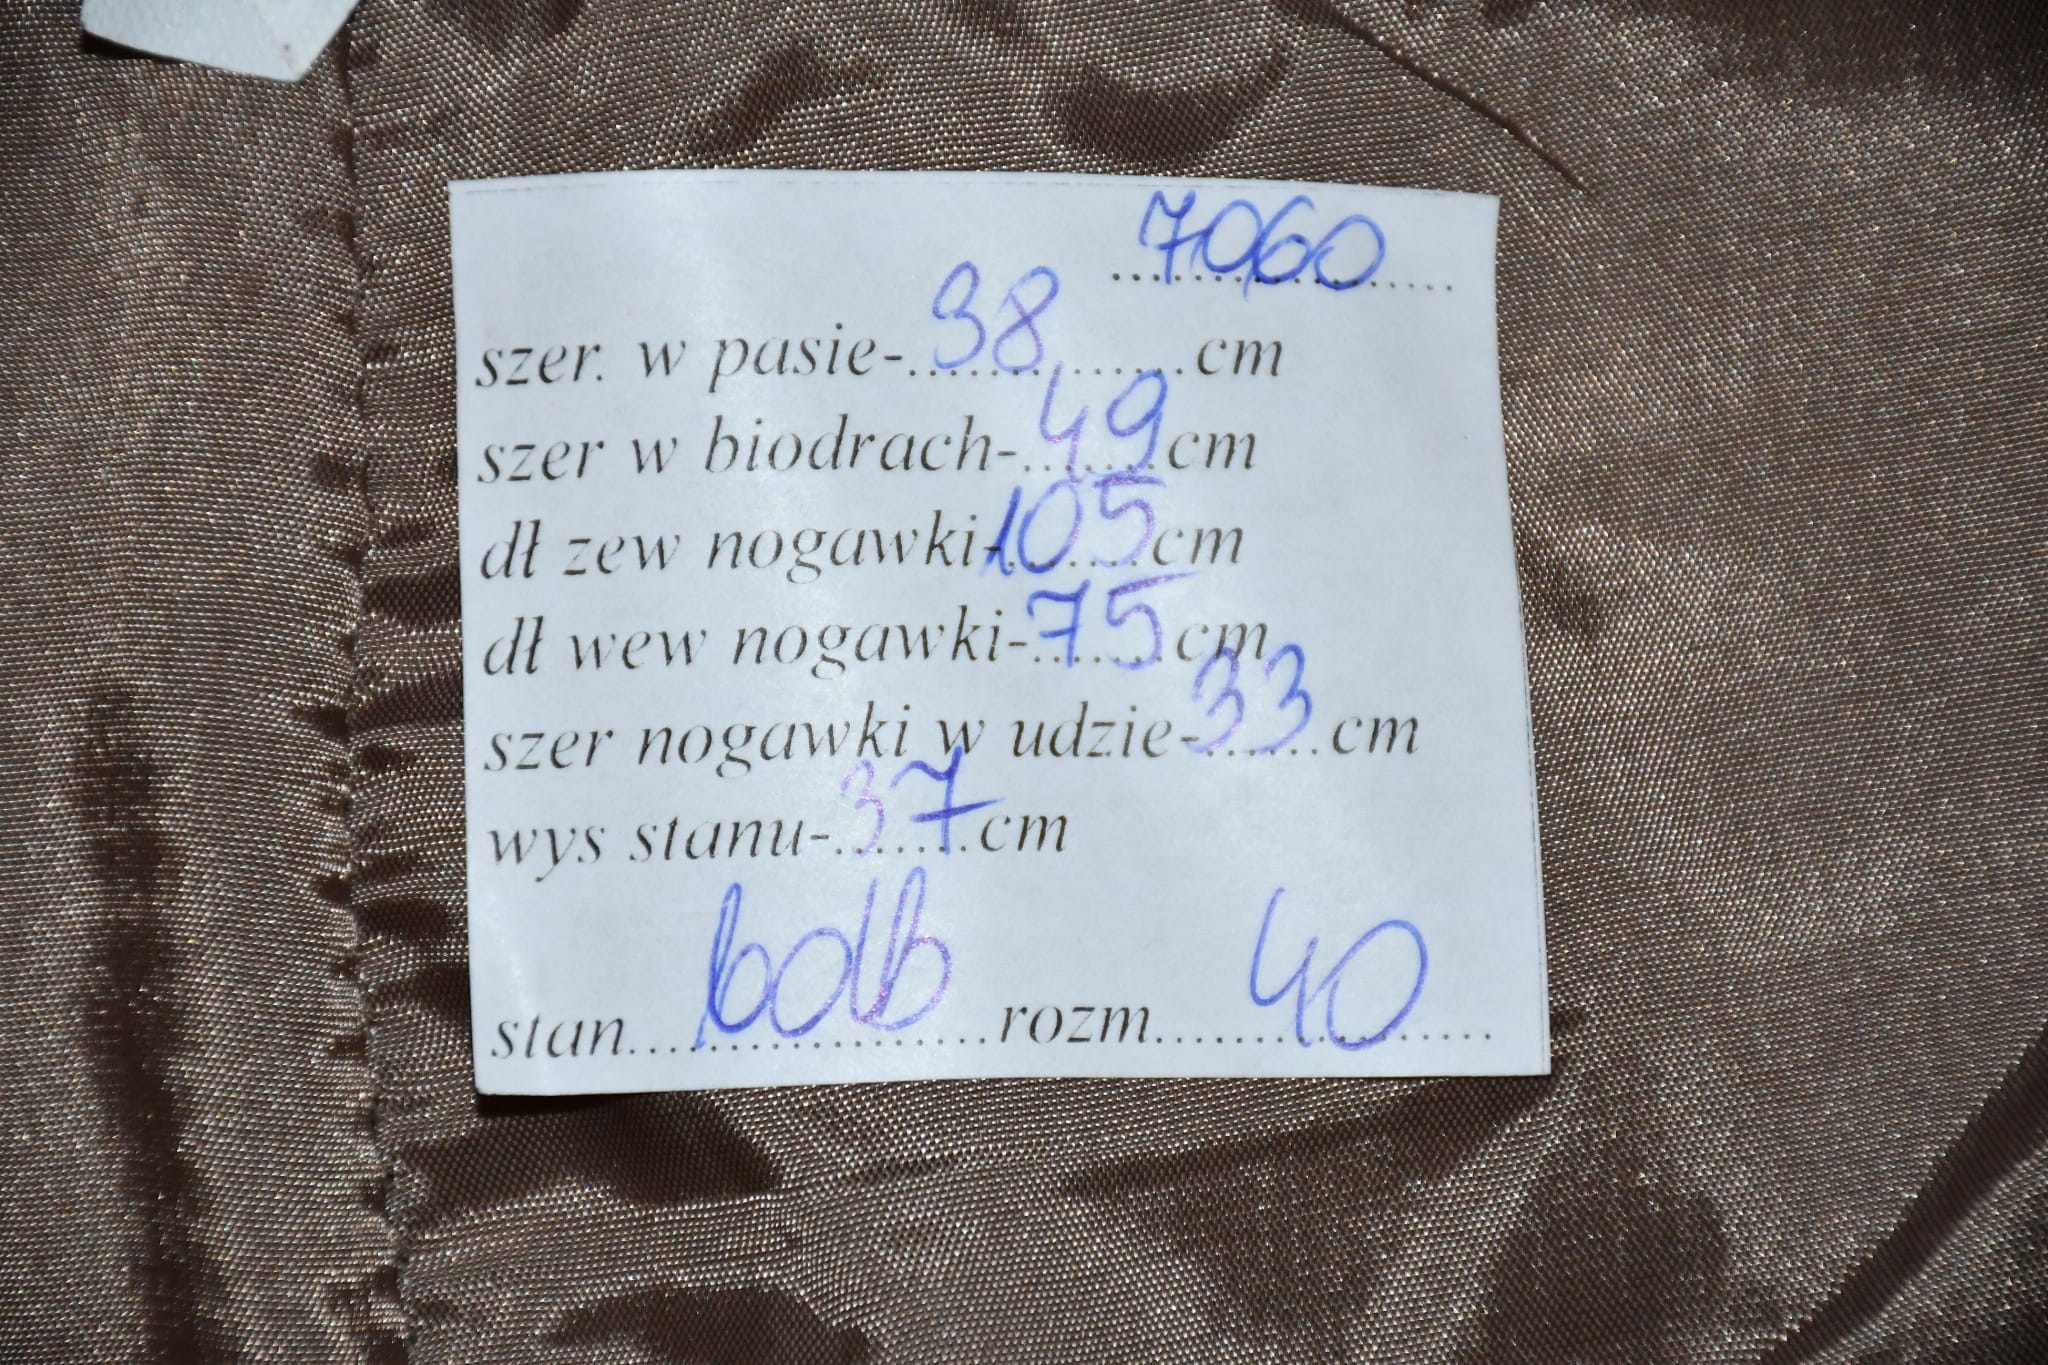 7060
szer. w pasie-38cm
szer w biodrach-49cm
dł zew nogawki-105cm
dł wew nogawki-75cm
szer nogawki w udzie-33cm
wys stanu-37cm
stan bdb rozm 40